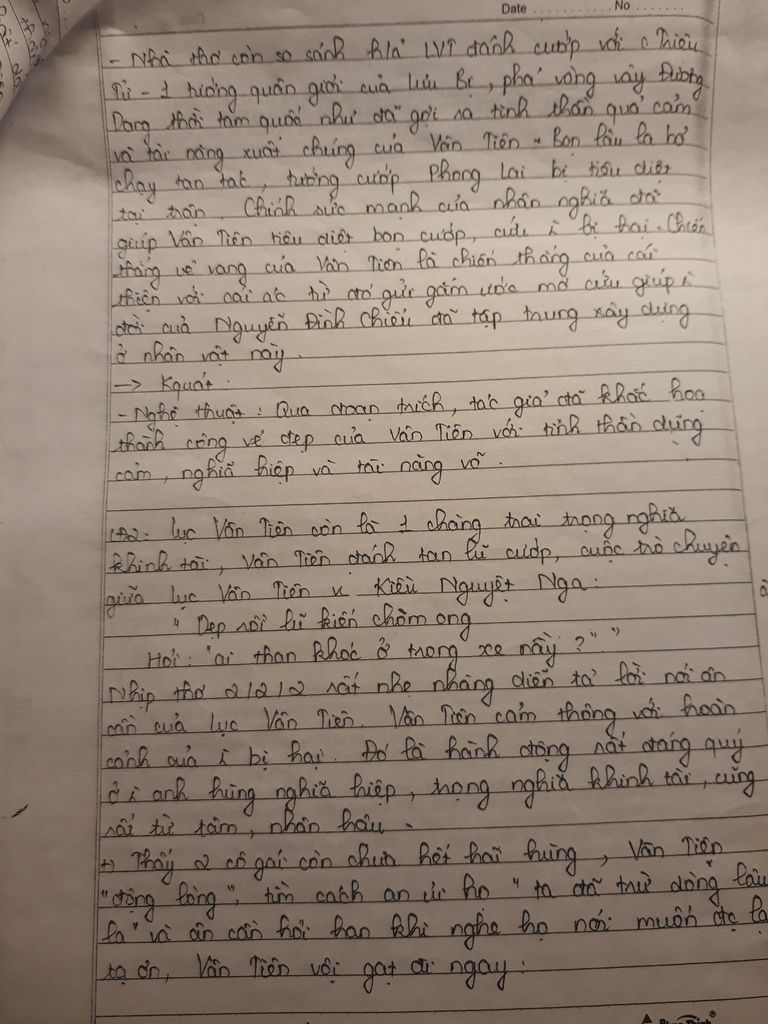 Date ............ No .......
- Nhà thơ còn so sánh h/ả LVT đánh cướp với c Triệu
Tử - 1 tướng quân giỏi của Lưu Bị, phá vòng vây Đương
Dang thời tam quốc như đã gợi ra tinh thần quả cảm
và tài năng xuất chúng của Vân Tiên. Bọn lâu la bỏ
chạy tan tác, tướng cướp Phong Lai bị tiêu diệt
tại trận. Chính sức mạnh của nhân nghĩa đã
giúp Vân Tiên tiêu diệt bọn cướp, cứu i bị hại. Chiến
thắng vẻ vang của Vân Tiên là chiến thắng của cái
thiện với cái ác từ đó gửi gắm ước mơ cứu giúp i
đời của Nguyễn Đình Chiểu đã tập trung xây dựng
ở nhân vật này.
-> Kquát:
- Nghệ thuật: Qua đoạn trích, tác giả đã khắc hoạ
thành công vẻ đẹp của Vân Tiên với tinh thần dũng
cảm, nghĩa hiệp và tài năng võ.
LĐ2: Lục Vân Tiên còn là 1 chàng trai trọng nghĩa
khinh tài, Vân Tiên đánh tan lũ cướp, cuộc trò chuyện
giữa Lục Vân Tiên và Kiều Nguyệt Nga:
" Dẹp rồi lũ kiến chòm ong
Hỏi: "ai than khóc ở trong xe nầy?" "
Nhịp thơ 2/2/2 rất nhẹ nhàng diễn tả lời nói ân
cần của Lục Vân Tiên. Vân Tiên cảm thông với hoàn
cảnh của i bị hại. Đó là hành động rất đáng quý
ở i anh hùng nghĩa hiệp, trọng nghĩa khinh tài, cũng
rất từ tâm, nhân hậu.
+) Thấy 2 cô gái còn chưa hết hãi hùng, Vân Tiên
"động lòng", tìm cách an ủi họ " ta đã trừ dòng lâu
la" và ân cần hỏi han khi nghe họ nói muốn đc lạ
tạ ơn, Vân Tiên vội gạt đi ngay: